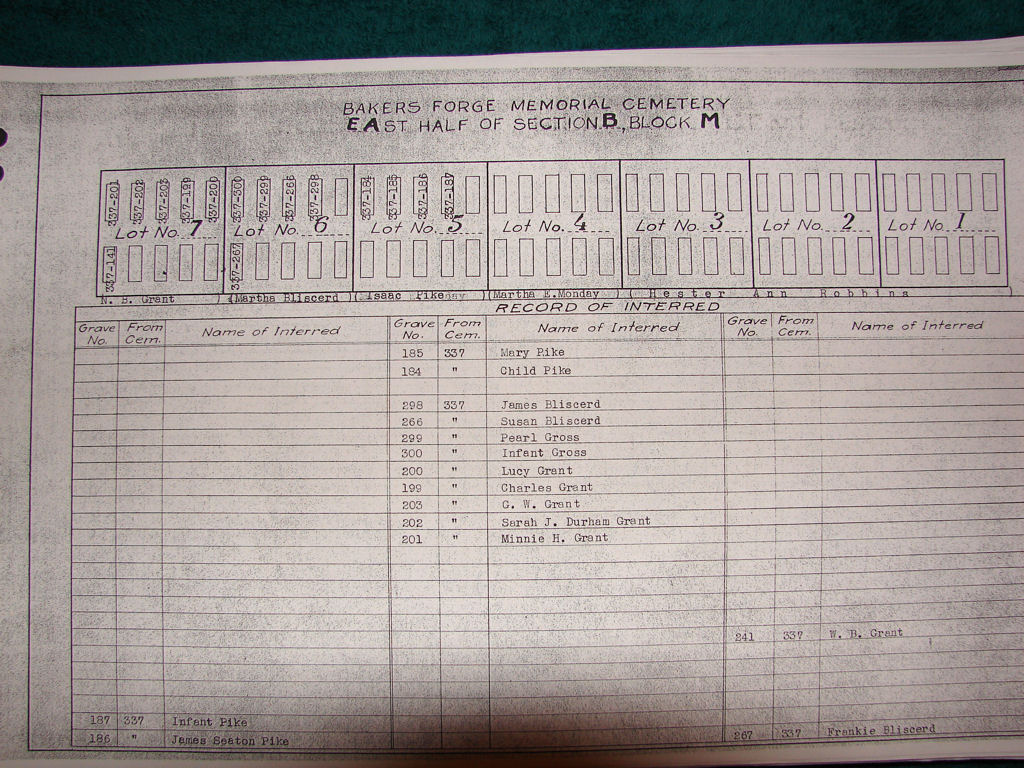 BAKERS FORGE MEMORIAL CEMETERY
EAST HALF OF SECTION B, BLOCK M
337-201 337-202 337-203 337-199 337-200 337-300 337-299 337-266 337-298 337-184 337-185 337-186 337-187
Lot No. 7 Lot No. 6 Lot No. 5 Lot No. 4 Lot No. 3 Lot No. 2 Lot No. 1
337-141 337-267
N. B. Grant ) (Martha Bliscerd ) ( Isaac Pike ) (Martha E. Monday ) ( Hester Ann Robbins )
RECORD OF INTERRED
Grave No. From Cem. Name of Interred Grave No. From Cem. Name of Interred Grave No. From Cem. Name of Interred
185 337 Mary Pike
184 " Child Pike
298 337 James Bliscerd
266 " Susan Bliscerd
299 " Pearl Gross
300 " Infant Gross
200 " Lucy Grant
199 " Charles Grant
203 " G. W. Grant
202 " Sarah J. Durham Grant
201 " Minnie H. Grant
241 337 W. B. Grant
187 337 Infant Pike
186 " James Seaton Pike 267 337 Frankie Bliscerd